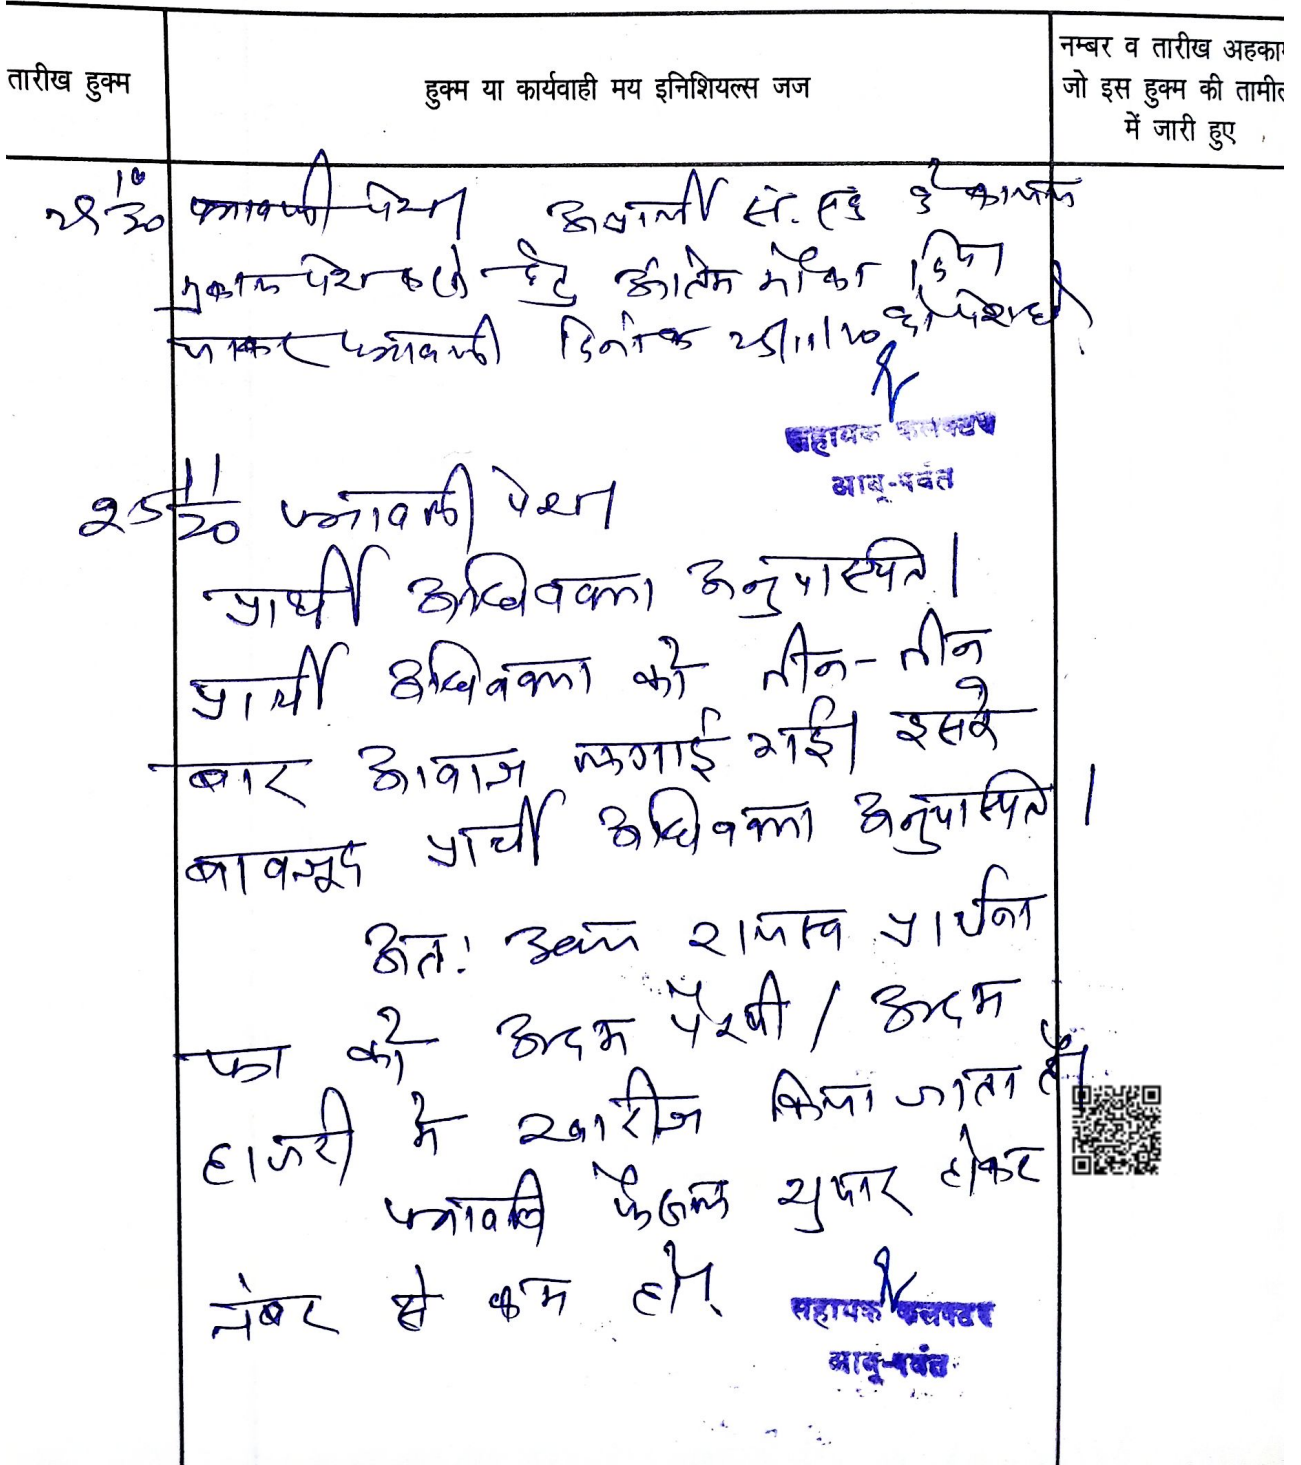 तारीख हुक्म
हुक्म या कार्यवाही मय इनिशियल्स जज
नम्बर व तारीख अहकाम
जो इस हुक्म की तामील
में जारी हुए
पत्रावली पेश।
पेश करने हेतु अंतिम मौका दिया
जाकर पत्रावली दिनांक 25/11/20 को पेश हो।
सहायक कलक्टर
आबू-पर्वत
25/11/20 पत्रावली पेश।
प्रार्थी अधिवक्ता अनुपस्थित।
प्रार्थी अधिवक्ता को तीन-तीन
बार आवाज लगाई गई। इसके
बावजूद प्रार्थी अधिवक्ता अनुपस्थित।
अतः उक्त राजस्व प्रार्थना
पत्र को अदम पैरवी / अदम
हाजरी में खारीज किया जाता है।
पत्रावलि फैसल शुमार होकर
नंबर से कम हो।
सहायक कलक्टर
आबू-पर्वत